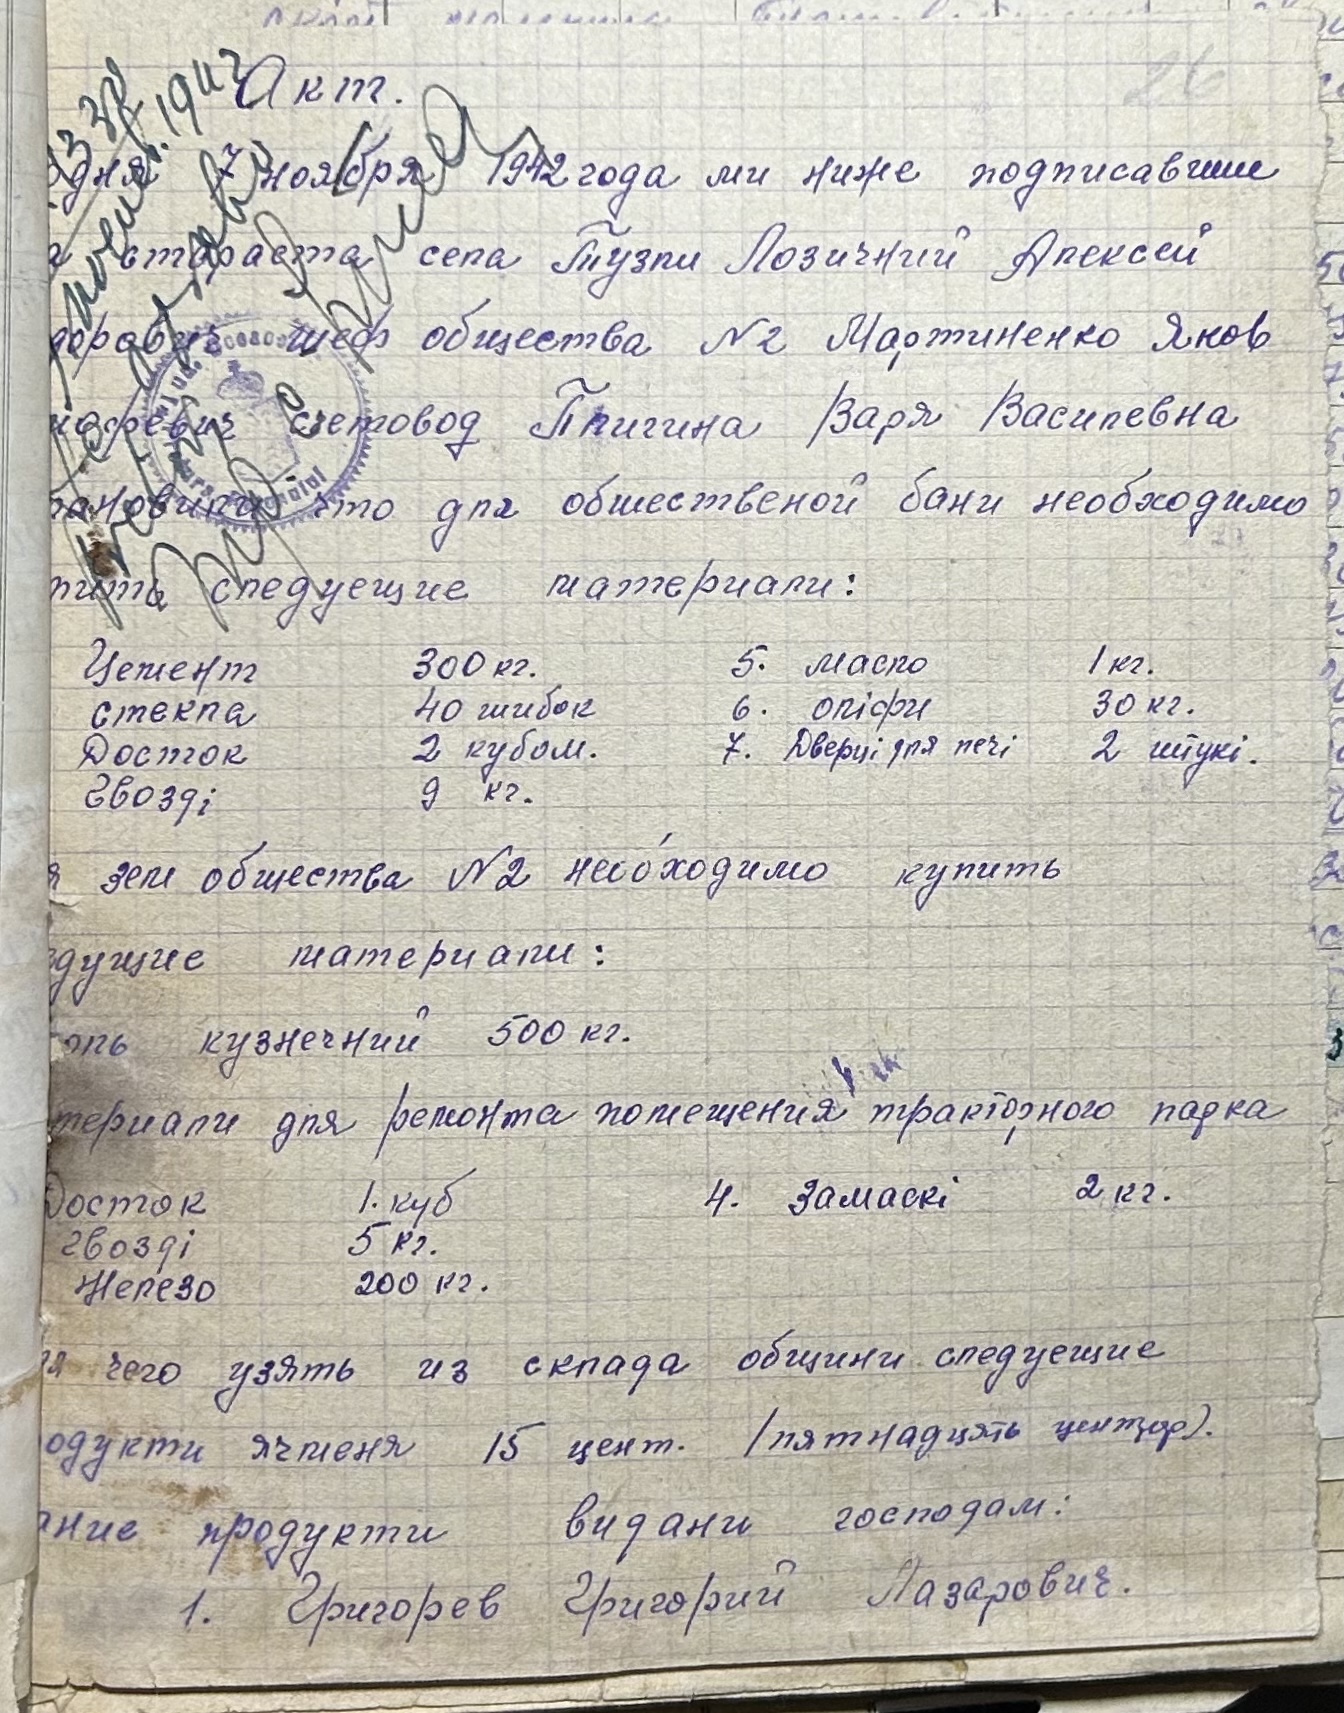 26
Акт.
дня 7 ноября 1942 года ми ниже подписавшие
стараста села Тузли Лозичний Алексей
доравич шеф общества №2 Мартиненко Яков
счетовод Пличина Варя Василевна
тановили что для обшественой бани необходимо
пить следуещие материали:
Цемент 300 кг. 5. масло 1 кг.
стекла 40 шибок 6. оліфи 30 кг.
Досток 2 кубом. 7. Дверці для печі 2 штукі.
Гвозді 9 кг.
я зем общества №2 необходимо купить
дущие материали:
оль кузнечний 500 кг.
териали для ремонта помещения тракторного парка
Досток 1. куб 4. Замаскі 2 кг.
гвозді 5 кг.
Железо 200 кг.
ля чего узять из склада общини следуещие
одукти ячменя 15 цент. (пятнадцять центор).
ание продукти видани господам:
1. Григорев Григорий Лазарович.